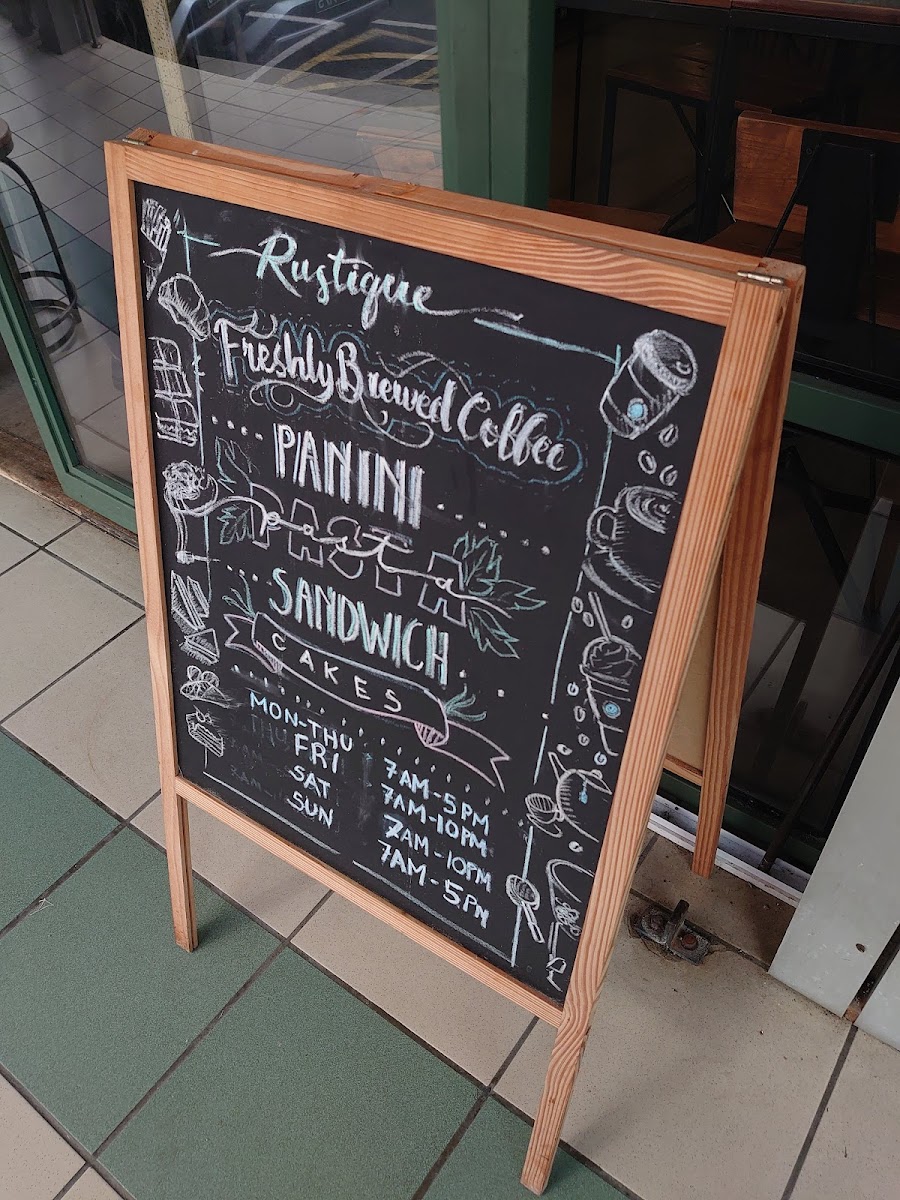 Rustique
Freshly Brewed Coffee
PANINI
PASTA
pasta
SANDWICH
CAKES
MON-THU 7AM-5PM
FRI 7AM-10PM
SAT 7AM-10PM
SUN 7AM-5PM